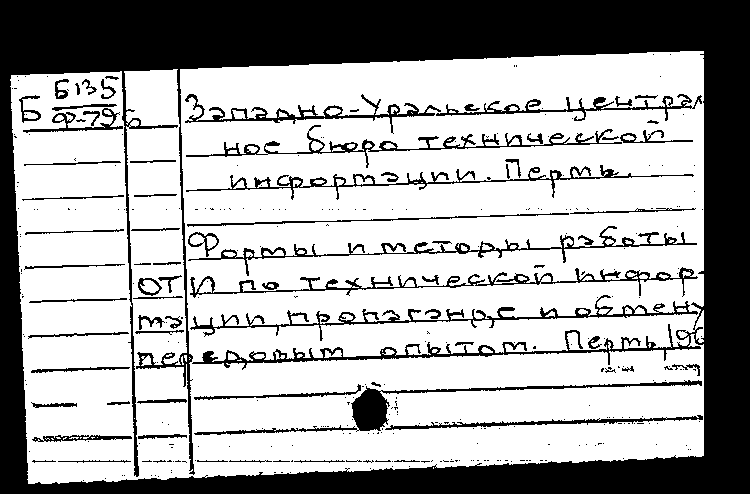 Б Б135
Ф-796
Западно-Уральское централ
ное бюро технической
информации. Пермь.
Формы и методы работы
ОТИ по технической инфор-
мации, пропаганде и обмену
передовым опытом. Пермь, 196